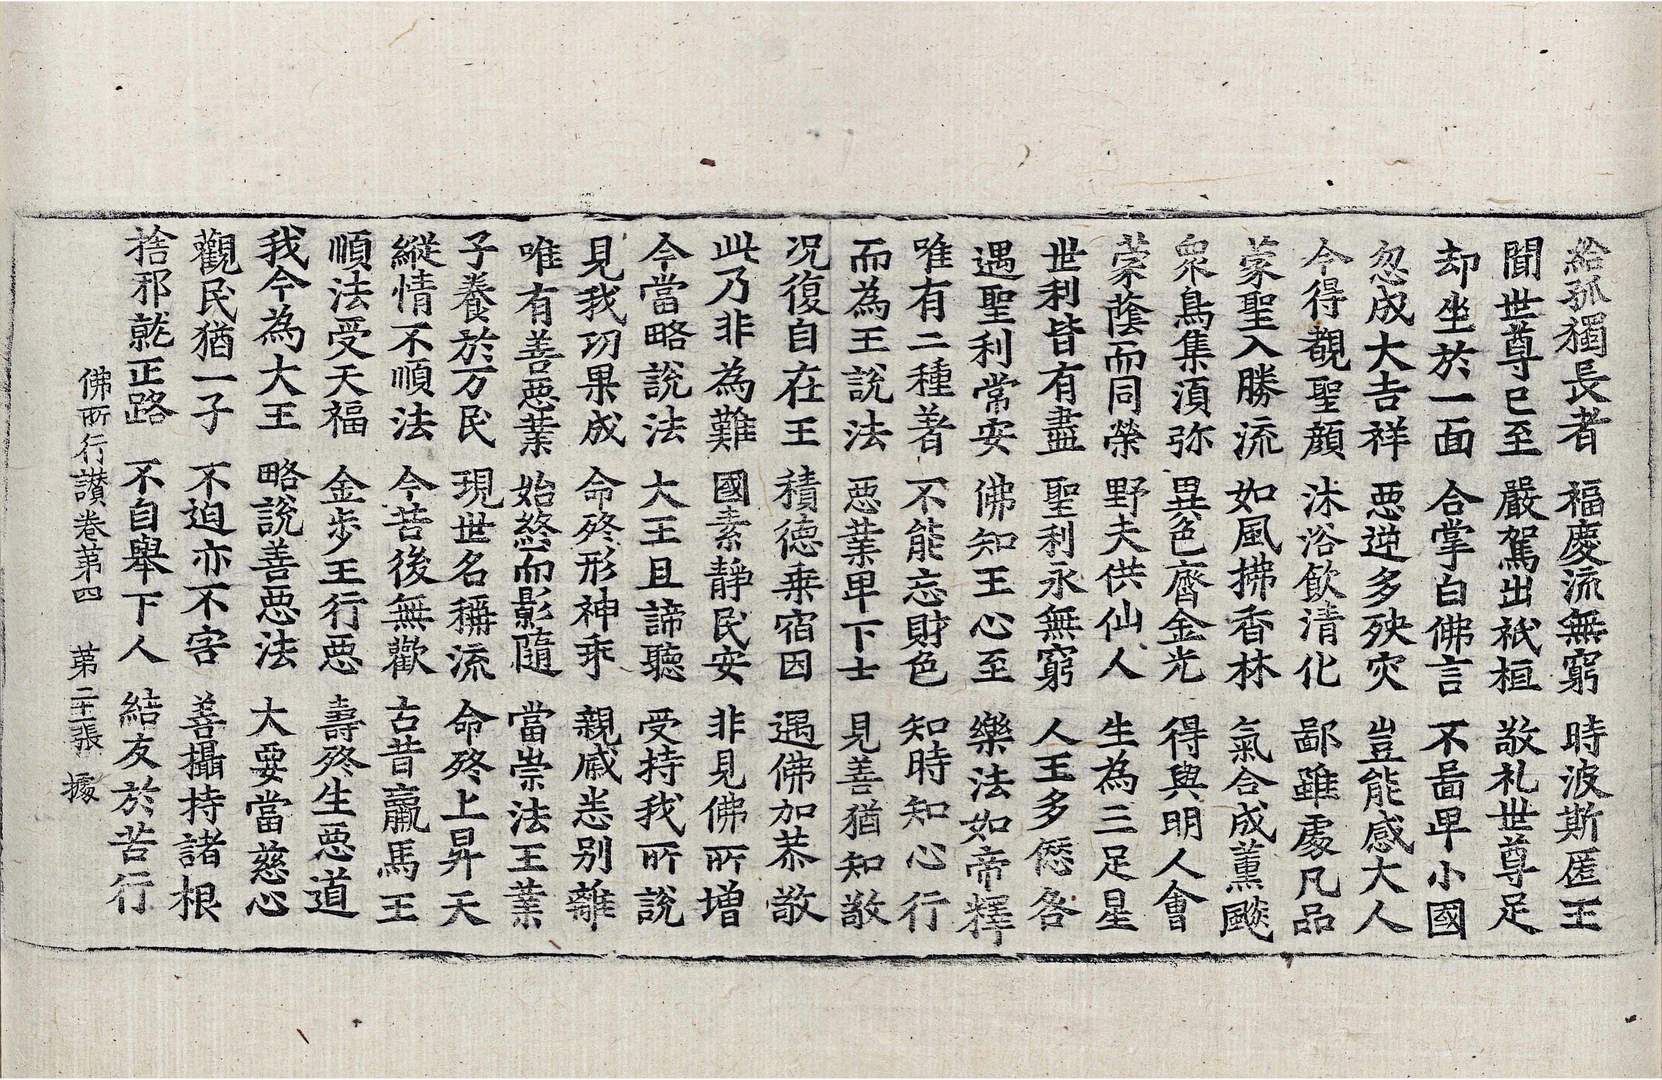 給孤獨長者 福慶流無窮 時波斯匿王
聞世尊已至 嚴駕出祇桓 敬礼世尊足
却坐於一面 合掌白佛言 不啚卑小國
忽成大吉祥 惡逆多殃灾 豈能感大人
今得覩聖顔 沐浴飲清化 鄙雖處凡品
蒙聖入勝流 如風拂香林 氣合成薰飈
衆鳥集湏弥 異色齊金光 得與明人會
蒙蔭而同榮 野夫供仙人 生為三足星
世利皆有盡 聖利永無窮 人王多㥶咎
遇聖利常安 佛知王心至 樂法如帝釋
唯有二種著 不能忘財色 知時知心行
而為王說法 惡業卑下士 見善猶知敬
况復自在王 積德乘宿因 遇佛加恭敬
此乃非為難 國素靜民安 非見佛所增
今當略說法 大王且諦聽 受持我所說
見我功果成 命終形神乖 親戚悉别離
唯有善惡業 始終而影隨 當崇法王業
子養於万民 現世名稱流 命終上昇天
縱情不順法 今苦後無歡 古昔羸馬王
順法受天福 金步王行惡 壽終生惡道
我今為大王 略說善惡法 大要當慈心
觀民猶一子 不迫亦不害 善攝持諸根
捨邪就正路 不自舉下人 結友於苦行
佛所行讃卷第四 第二十一張 據